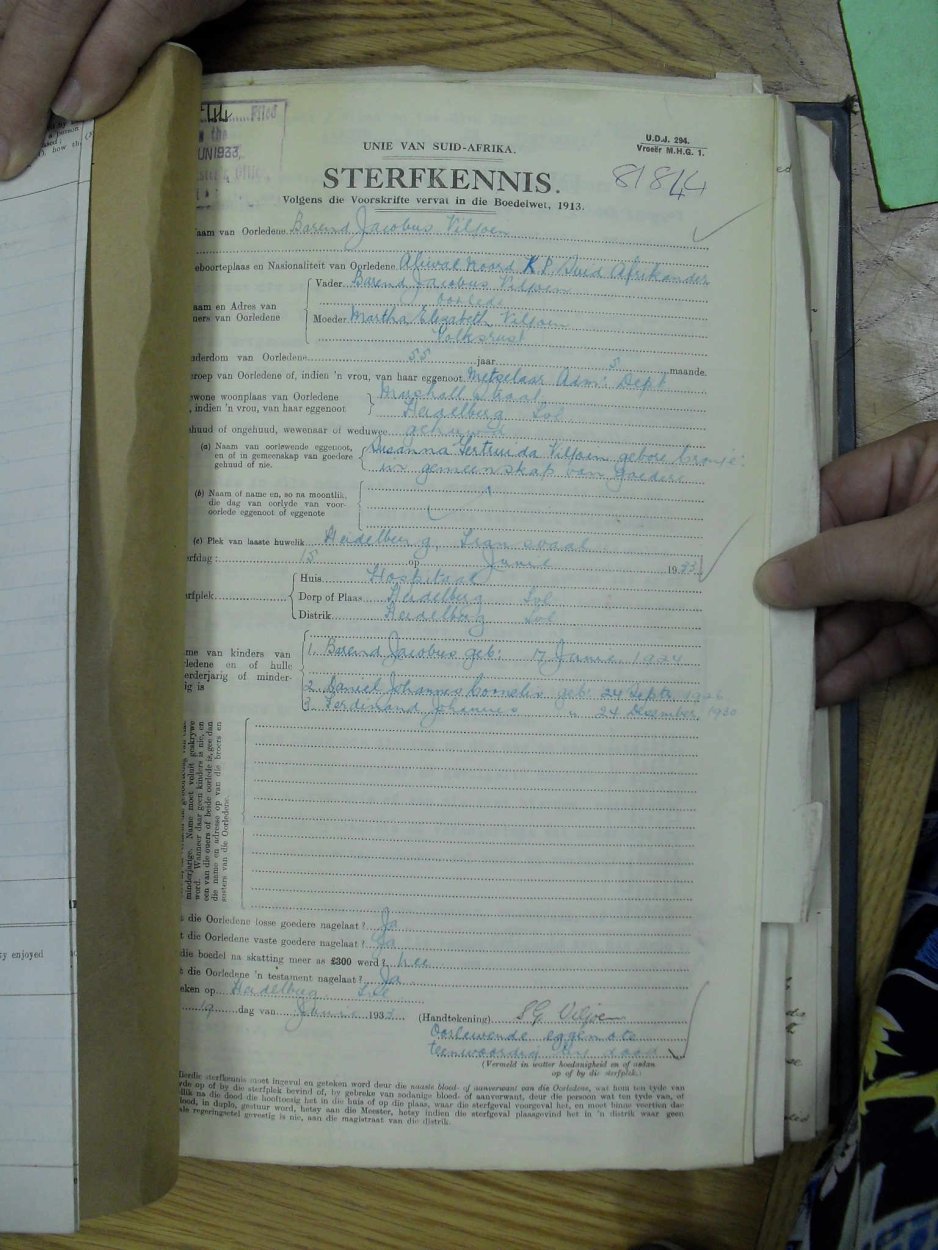 44 Filed
the
UN 1933,
U.D.J. 294.
Vroeër M.H.G. 1.
UNIE VAN SUID-AFRIKA.
81844
STERFKENNIS.
Volgens die Voorskrifte vervat in die Boedelwet, 1913.
aam van Oorledene Barend Jacobus Viljoen
eboorteplaas en Nasionaliteit van Oorledene Aliwal Noord K.P. Suid Afrikander
Vader Barend Jacobus Viljoen
oorlede
aam en Adres van
ners van Oorledene
Moeder Martha Elizabeth Viljoen
Volksrust
derdom van Oorledene 55 jaar 5 maande.
roep van Oorledene of, indien 'n vrou, van haar eggenoot Metselaar Adm: Dept
wone woonplaas van Oorledene
, indien 'n vrou, van haar eggenoot
Straat
Heidelberg Tvl
huud of ongehuud, wewenaar of weduwee gehuwd
(a) Naam van oorlewende eggenoot,
en of in gemeenskap van goedere
gehuud of nie.
Susanna Gertruida Viljoen gebore Cronje
in gemeenskap van goedere
(b) Naam of name en, so na moontlik,
die dag van oorlyde van voor-
oorlede eggenoot of eggenote
(c) Plek van laaste huwelik Heidelberg, Transvaal
erfdag: 15 op Junie 1933
rfplek
Huis Hospitaal
Dorp of Plaas Heidelberg Tvl
Distrik Heidelberg Tvl
me van kinders van
ledene en of hulle
erderjarig of minder-
ig is
1. Barend Jacobus geb: 17 Junie 1924
2. Daniel Johannes Cornelis geb: 24 Septr 1926
3. Ferdinand Johannes " 24 Desember 1930
minderjarige. Name moet voluit geskrywe
word. Wanneer daar geen kinders is nie, en
een van die ouers of beide oorlede is, gee dan
die name en adresse op van die broers en
susters van die Oorledene.
t die Oorledene losse goedere nagelaat? Ja
t die Oorledene vaste goedere nagelaat? Ja
die boedel na skatting meer as £300 werd? Nee
t die Oorledene 'n testament nagelaat? Ja
eken op Heidelberg, Tvl
19 dag van Junie 1933
(Handtekening) S G Viljoen
Oorlewende eggenote
teenwoordig by dood
(Vermeld in watter hoedanigheid en of aldan
op of by die sterfplek.)
Hierdie sterfkennis moet ingevul en geteken word deur die naaste bloed- of aanverwant van die Oorledene, wat ten tyde van
rde op of by die sterfplek bevind of, by gebreke van sodanige bloed- of aanverwant, deur die persoon wat ten tyde van, of
llik na die dood die hooftoesig het in die huis of op die plaas, waar die sterfgeval voorgeval het, en moet binne veertien dae
lood, in duplo, gestuur word, hetsy aan die Meester, hetsy indien die sterfgeval plaasgevind het in 'n distrik waar geen
ale regeringsetel gevestig is nie, aan die magistraat van die distrik.
y enjoyed